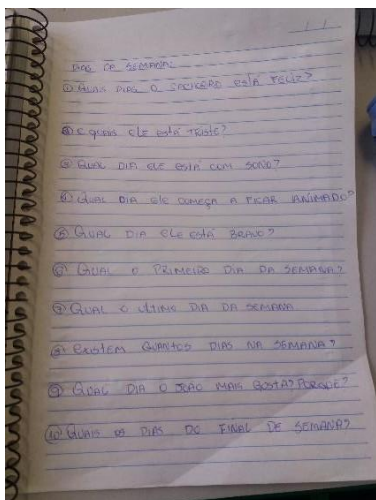 DIAS DA SEMANA
① QUAIS DIAS O CACHORRO ESTÁ FELIZ?
② E QUAIS ELE ESTÁ TRISTE?
③ QUAL DIA ELE ESTÁ COM SONO?
④ QUAL DIA ELE COMEÇA A FICAR ANIMADO?
⑤ QUAL DIA ELE ESTÁ BRAVO?
⑥ QUAL O PRIMEIRO DIA DA SEMANA?
⑦ QUAL O ULTIMO DIA DA SEMANA
⑧ EXISTEM QUANTOS DIAS NA SEMANA?
⑨ QUAL DIA O JOÃO MAIS GOSTA? PORQUE?
⑩ QUAIS OS DIAS DO FINAL DE SEMANA?